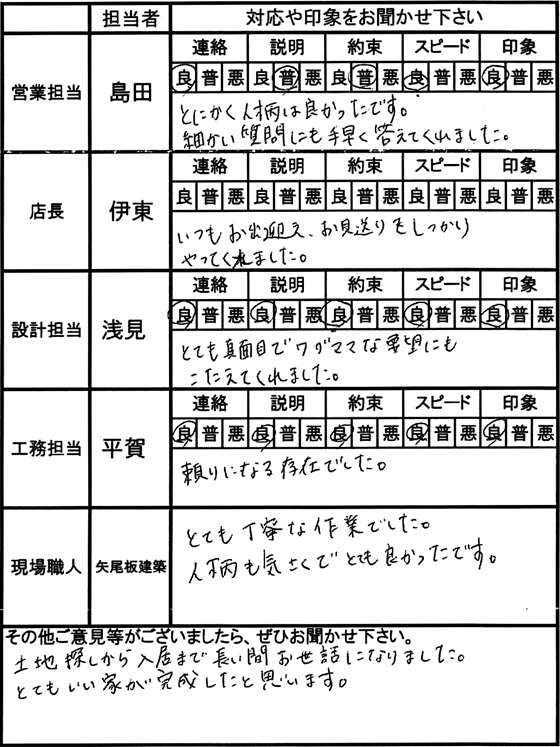 担当者 対応や印象をお聞かせ下さい
連絡 説明 約束 スピード 印象
良 普 悪 良 普 悪 良 普 悪 良 普 悪 良 普 悪
営業担当 島田
とにかく人柄は良かったです。
細かい質問にも手早く答えてくれました。
連絡 説明 約束 スピード 印象
良 普 悪 良 普 悪 良 普 悪 良 普 悪 良 普 悪
店長 伊東
いつもお出迎え、お見送りをしっかり
やってくれました。
連絡 説明 約束 スピード 印象
良 普 悪 良 普 悪 良 普 悪 良 普 悪 良 普 悪
設計担当 浅見
とても真面目でワガママな要望にも
こたえてくれました。
連絡 説明 約束 スピード 印象
良 普 悪 良 普 悪 良 普 悪 良 普 悪 良 普 悪
工務担当 平賀
頼りになる存在でした。
現場職人 矢尾板建築
とても丁寧な作業でした。
人柄も気さくでとても良かったです。
その他ご意見等がございましたら、ぜひお聞かせ下さい。
土地探しから入居まで長い間お世話になりました。
とてもいい家が完成したと思います。